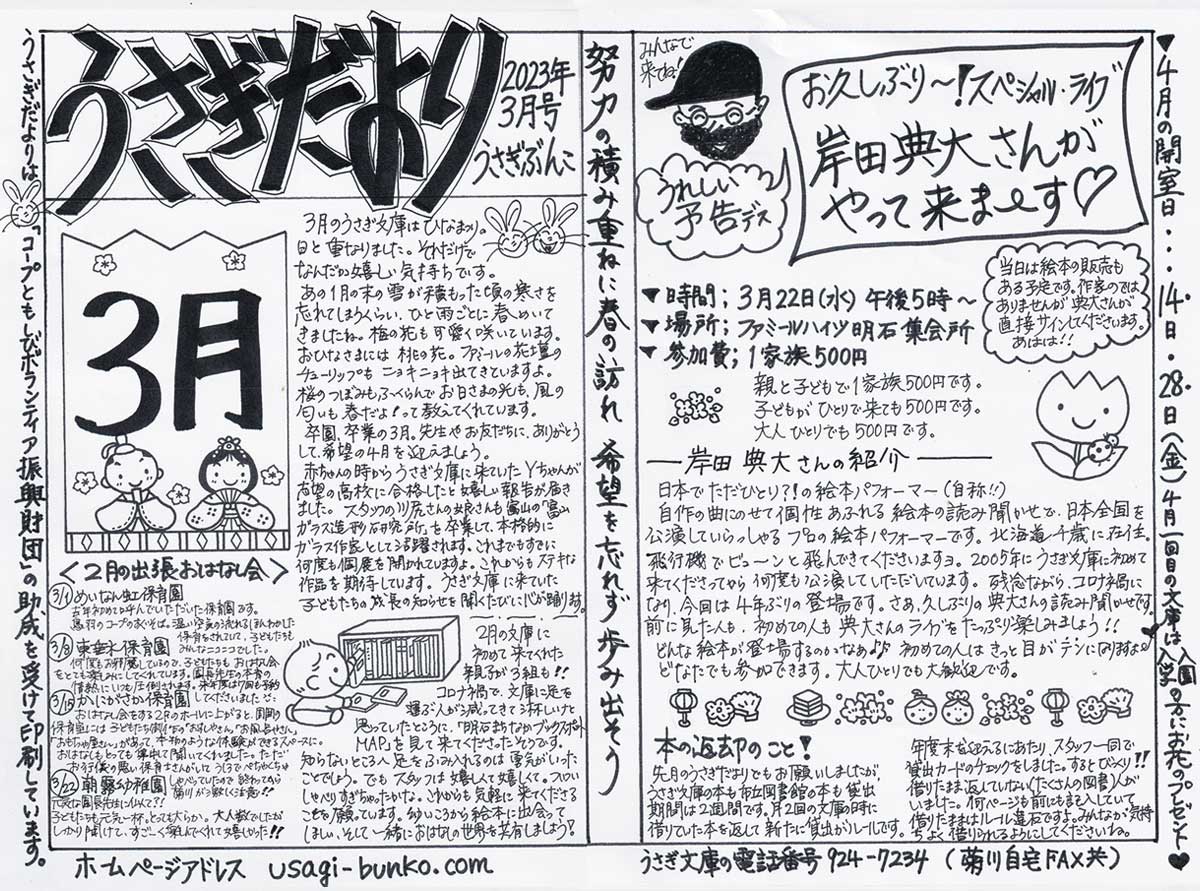 うさぎだより
2023年
3月号
うさぎぶんこ
うさぎだよりは、「コープともしびボランティア振興財団」の助成を受けて印刷しています。
3月
3月のうさぎ文庫はひなまつり。
日と重なりました。それだけで
なんだか嬉しい気持ちです。
あの1月の末の雪が積もった頃の寒さを
忘れてしまうくらい、ひと雨ごとに春めいて
きましたね。梅の花も可愛く咲いています。
おひなさまには桃の花。ファミールの花壇の
チューリップもニョキニョキ出てきていますよ。
桜のつぼみもふくらんでお日さまの光も、風の
匂いも春だよ!って教えてくれています。
卒園、卒業の3月。先生やお友だちに、ありがとう
して、希望の4月を迎えましょう。
赤ちゃんの時からうさぎ文庫に来ていたYちゃんが
希望の高校に合格したと嬉しい報告が届き
ました。スタッフの川尻さんの娘さんも富山の「富山
ガラス造形研究所」を卒業して、本格的に
ガラス作家として活躍されます。これまでもすでに
何度も個展を開かれていますよ。これからもステキな
作品を期待しています。うさぎ文庫に来ていた
子どもたちの成長の知らせを聞くたびに心が踊ります。
<2月の出張おはなし会>
3/1 めいなん虹保育園
去年初めて呼んでいただいた保育園です。
保育をされていて、子どもたちも
みんなニコニコでした。
3/8 東華末保育園
何度もお邪魔しているので、子どもたちもおはなし会
をとても楽しみにしてくれています。園長先生の本育の
情熱にいつも圧倒されます。来年度は7回も予約
してくださいました
3/15 かにがさか保育園
おはなし会をする2Fのホールに上がると、
3/22 朝霧幼稚園
元気な園長先生に似て??
子どもたちも元気一杯。とっても大らか。大人数でしたが
しっかり聞けて、すご〜く楽しんでくれて嬉しかった!!
2月の文庫に
初めて来てくれた
親子が3組も!!
コロナ禍で、文庫に足を
運ぶ人が減ってきて3杯しいけど
思っていたところに、「明石まちなかブックスポット
MAP」を見て来てくださったそうです。
知らないところへ足をふみ入れるのは勇気がいった
ことでしょう。でもスタッフは嬉しくて嬉しくて。ついつい
しゃべりすぎちゃったかな。これからも気軽に来てくださる
ことを願っています。幼いころから絵本に出会って
ほしい、そして一緒におはなしの世界を共有しましょう!
ホームページアドレス usagi-bunko.com
努力の積み重ねに春の訪れ 希望を忘れず歩み出そう
みんなで
来てね!
うれしい
予告デス
お久しぶり〜!スペシャル・ライブ
岸田典大さんが
やって来ま〜す♡
▼時間;3月22日(水)午後5時〜
▼場所;ファミールハイツ明石集会所
▼参加費;1家族500円
親と子どもで1家族500円です。
子どもがひとりで来ても500円です。
大人ひとりでも500円です。
当日は絵本の販売も
ある予定です。作家のでは
ありませんが典大さんが
直接サインしてくださいます。
あはは!!
―岸田 典大さんの紹介―
日本でただひとり?!の絵本パフォーマー(自称!!)
自作の曲にのせて個性あふれる絵本の読み聞かせで、日本全国を
公演していらっしゃるプロの絵本パフォーマーです。北海道千歳に在住。
飛行機でビュ〜ンと飛んできてくださいますヨ。2005年にうさぎ文庫に初めて
来てくださってから何度も公演していただいています。残念ながら、コロナ禍に
なり、今回は4年ぶりの登場です。さあ、久しぶりの典大さんの読み聞かせです。
前に見た人も、初めての人も典大さんのライブをたっぷり楽しみましょう!!
どんな絵本が登場するのかなぁ♪ 初めての人はきっと目がテンになりますよ
どなたでも参加できます。大人ひとりでも大歓迎です。
本の返却のこと!
先月のうさぎだよりでもお願いしましたが、
うさぎ文庫の本も市立図書館の本も貸出
期間は2週間です。月2回の文庫の時に
借りていた本を返して新たに貸出がルールです。
年度末を迎えるにあたり、スタッフ一同で
貸出カードのチェックをしました。するとびっくり!!
借りたまま返していない(たくさんの図書)人が
いました。何ページも前にも記入していて
借りたままはルール違反ですよ。みんなが気持
ちよく借りられるようにしてくださいね。
うさぎ文庫の電話番号 924-7234 (菊川自宅FAX共)
▼4月の開室日・・・14日・28日(金)4月一回目の文庫は入園入学の方にお花のプレゼント♥